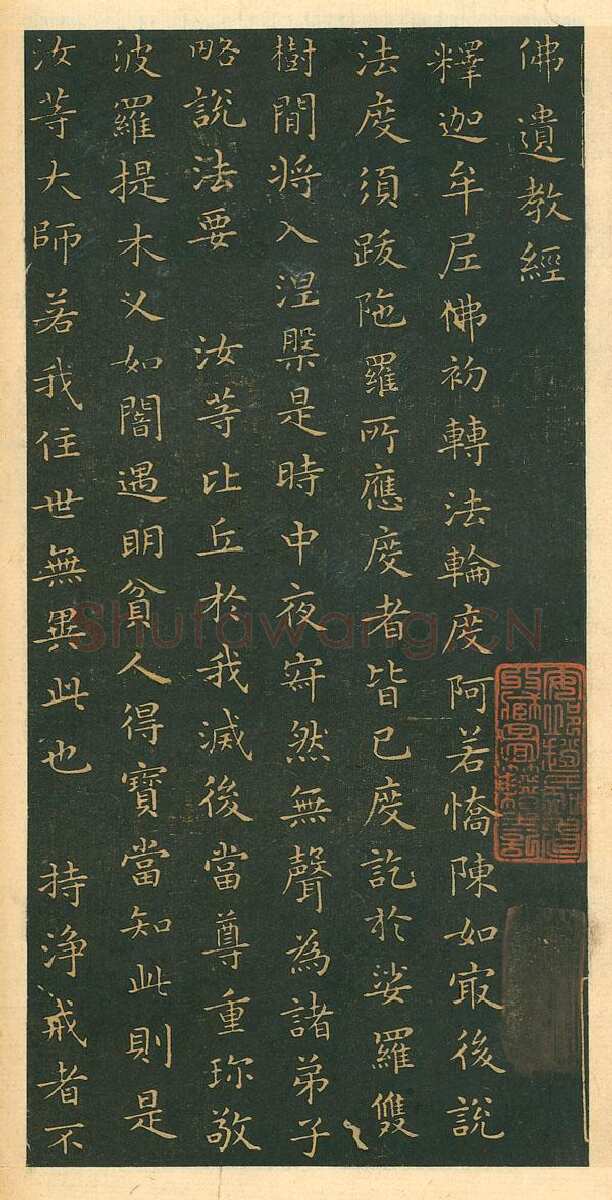 佛遺教經
釋迦牟尼佛初轉法輪度阿若憍陳如㝡後說
法度須跋陁羅所應度者皆已度訖於娑羅雙
樹間將入涅槃是時中夜寂然無聲為諸弟子
略說法要 汝等比丘於我滅後當尊重珎敬
波羅提木叉如闇遇明貧人得寶當知此則是
汝等大師若我住世無異此也 持淨戒者不
Shufawang.CN